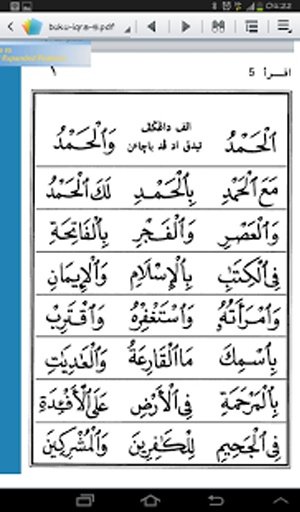 04:22
buku-iqra-5.pdf
Expanded Features
١ اقرأ 5
اَلْحَمْدُ الف دڠكڤ تيدق اد ڤد باچاءن وَالْحَمْدُ
مَعَ الْحَمْدِ بِالْحَمْدِ لَكَ الْحَمْدُ
وَالْعَصْرِ وَالْفَجْرِ بِالْفَاتِحَةِ
فِى الْكِتٰبِ بِالْإِسْلَامِ وَالْإِيْمَانِ
وَامْرَأَتُهُ وَاسْتَغْفِرْهُ وَاقْتَرِبْ
بِاسْمِكَ مَا الْقَارِعَةُ وَالْعٰدِيٰتِ
بِالْمَرْحَمَةِ فِى الْأَرْضِ عَلَى الْأَفْئِدَةِ
فِى الْجَحِيْمِ لِلْكٰفِرِيْنَ وَالْمُشْرِكِيْنَ